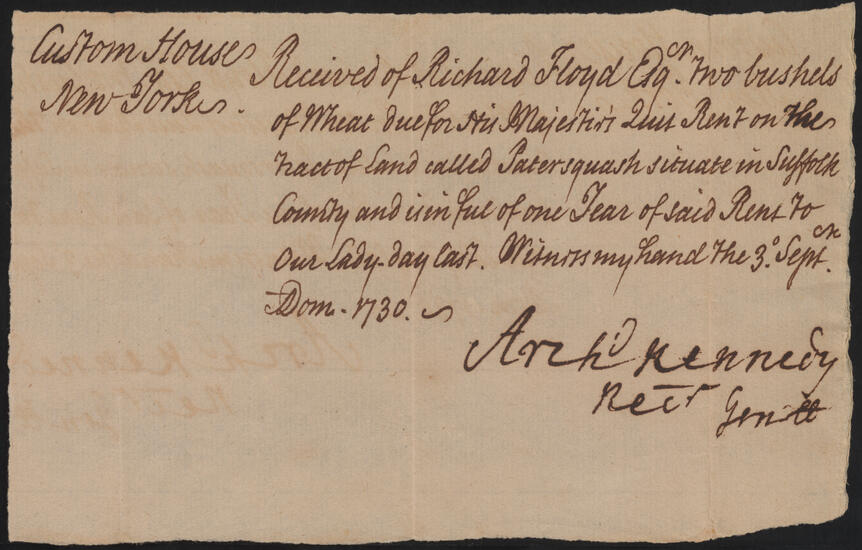 Custom House
New York.
Received of Richard Floyd Esqr. two bushels
of Wheat due for His Majestie's Quit Rent on the
tract of Land called Patersquash situate in Suffolk
County and is in full of one Year of said Rent to
Our Lady-day last. Witness my hand the 3d. Sept.
Dom. 1730.
Archd Kennedy
Recr
Genll